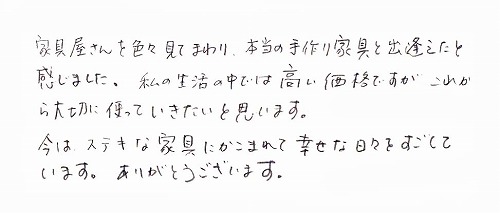 家具屋さんを色々見てまわり、本当の手作り家具と出逢えたと
感じました。私の生活の中では高い価格ですが これか
ら大切に使っていきたいと思います。
今は、ステキな家具にかこまれて幸せな日々をすごして
います。ありがとうございます。